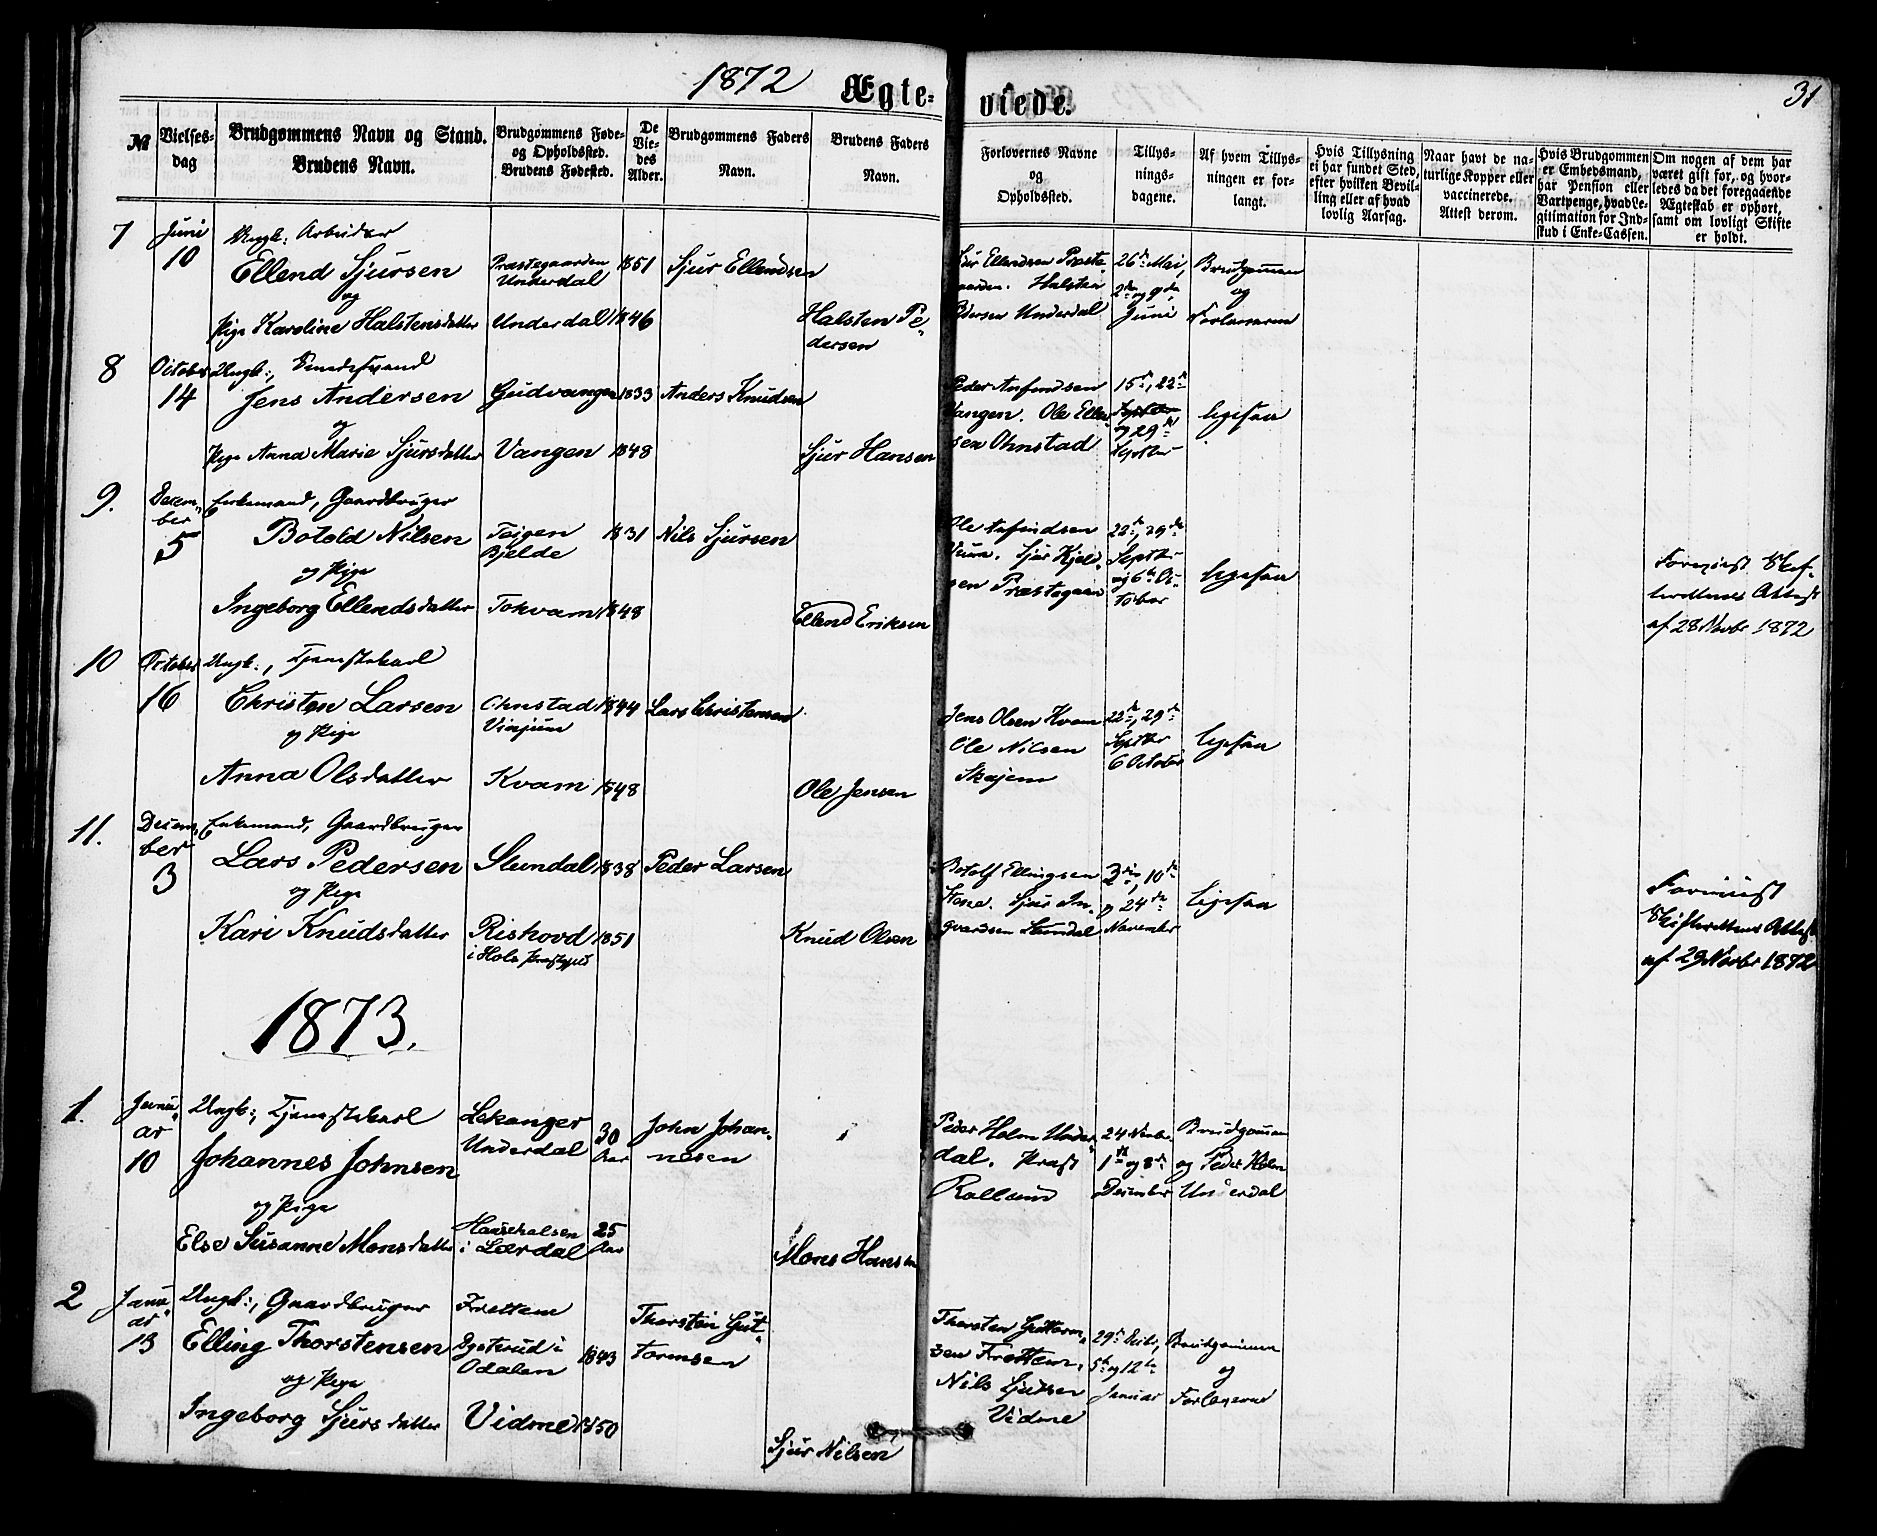 1872 Ægte- viede. 31
№
Vielses-
dag
Brudgommens Navn og Stand.
Brudens Navn.
Brudgommens Føde-
og Opholdssted.
Brudens Fødested.
De
Vie-
des
Alder.
Brudgommens Faders
Navn.
Brudens Faders
Navn.
Forlovernes Navne
og
Opholdssted.
Tillys-
nings-
dagene.
Af hvem Tillys-
ningen er for-
langt.
Hvis Tillysning
ei har fundet Sted,
efter hvilken Bevil-
ling eller af hvad
lovlig Aarsag.
Naar havt de na-
turlige Kopper eller
vaccinerede.
Attest derom.
Hvis Brudgommen
er Embedsmand,
har Pension eller
Vartpenge, hvad Le-
gitimation for Ind-
skud i Enke-Cassen.
Om nogen af dem har
været gift før, og hvor-
ledes da det foregaaende
Ægteskab er ophørt,
samt om lovligt Skifte
er holdt.
7
Juni
10
Ungk: Arbeider
Ellend Sjursen
og
Pige Karoline Halstensdatter
Præstegaarden
Underdal
Underdal
1851
1846
Sjur Ellendsen
Halsten Pe-
dersen
Sjur Ellendsen Præste-
gaarden. Halsten
Pedersen Underdal
26de Mai,
2den og 9de
Juni
Brudgommen
og
Forloverne
8
October
14
Ungk:,
Jens Andersen
og
Pige Anna Marie Sjursdatter
Gudvangen
Vangen
1833
1848
Anders Knudsen
Sjur Hansen
Peder Anfindsen
Vangen. Ole Ellen-
sen Ohnstad
15de, 22de
Septbr
og 29de
Septbr
Ligesaa
9.
Decem-
ber
5
Enkemand, Gaardbruger
Botold Nilsen
og Pige
Ingeborg Ellendsdatter
Teigen
Bjelde
Tokvam
1831
1848
Nils Sjursen
Ellend Eriksen
Ole Anfindsen
Veum. Sjur Kjeld-
sen Præstegaard
22de, 29de
Septbr
og 6te Oc-
tober
Ligesaa
Forevist Skif-
terettens Attest
af 28 Novbr 1872
10
October
16
Ungk:, Tjenestekarl
Christen Larsen
og Pige
Anna Olsdatter
Ohnstad
Vinjum
Kvam
1844
1848
Lars Christensen
Ole Jensen
Jens Olsen Kvam
Ole Nilsen
Skajem
22de, 29de
Septbr
6 October
Ligesaa
11.
Decem-
ber
3
Enkemand, Gaardbruger
Lars Pedersen
og Pige
Kari Knudsdatter
Stundal
Rishovd
i Hols Præstegjeld
1838
1851
Peder Larsen
Knud Olsen
Botolf Ellingsen
Stene. Sjur In-
gvardsen Stundal
3die, 10de
og 24de
November
Ligesaa
Forevist
Skifterettens Attest
af 29 Novbr 1872
1873.
1.
Janu-
ar
10
Ungk:, Tjenestekarl
Johannes Johnsen
og Pige
Else Susanne Monsdatter
Lekanger
Underdal
i Lærdal
30
Aar
25
Aar
John Johan-
nesen
Mons Hansen
Peder Holm Under-
dal. Præst
24 Novbr.
1ste og 8de
December
Brudgommen
og Peder Holm
Underdal
2
Janu-
ar
13
Ungk:, Gaardbruger
Elling Thorstensen
og Pige
Ingeborg Sjursdatter
Frettem
Dysterud i
Odalen
Vidme
1843
1850
Thorstein Gut-
tormsen
Sjur Nilsen
Thorsten Guttorm-
sen Frettem.
Nils Sjursen
Vidme
29de Decbr,
5te og 12te
Januar
Brudgommen
og
Forloverne